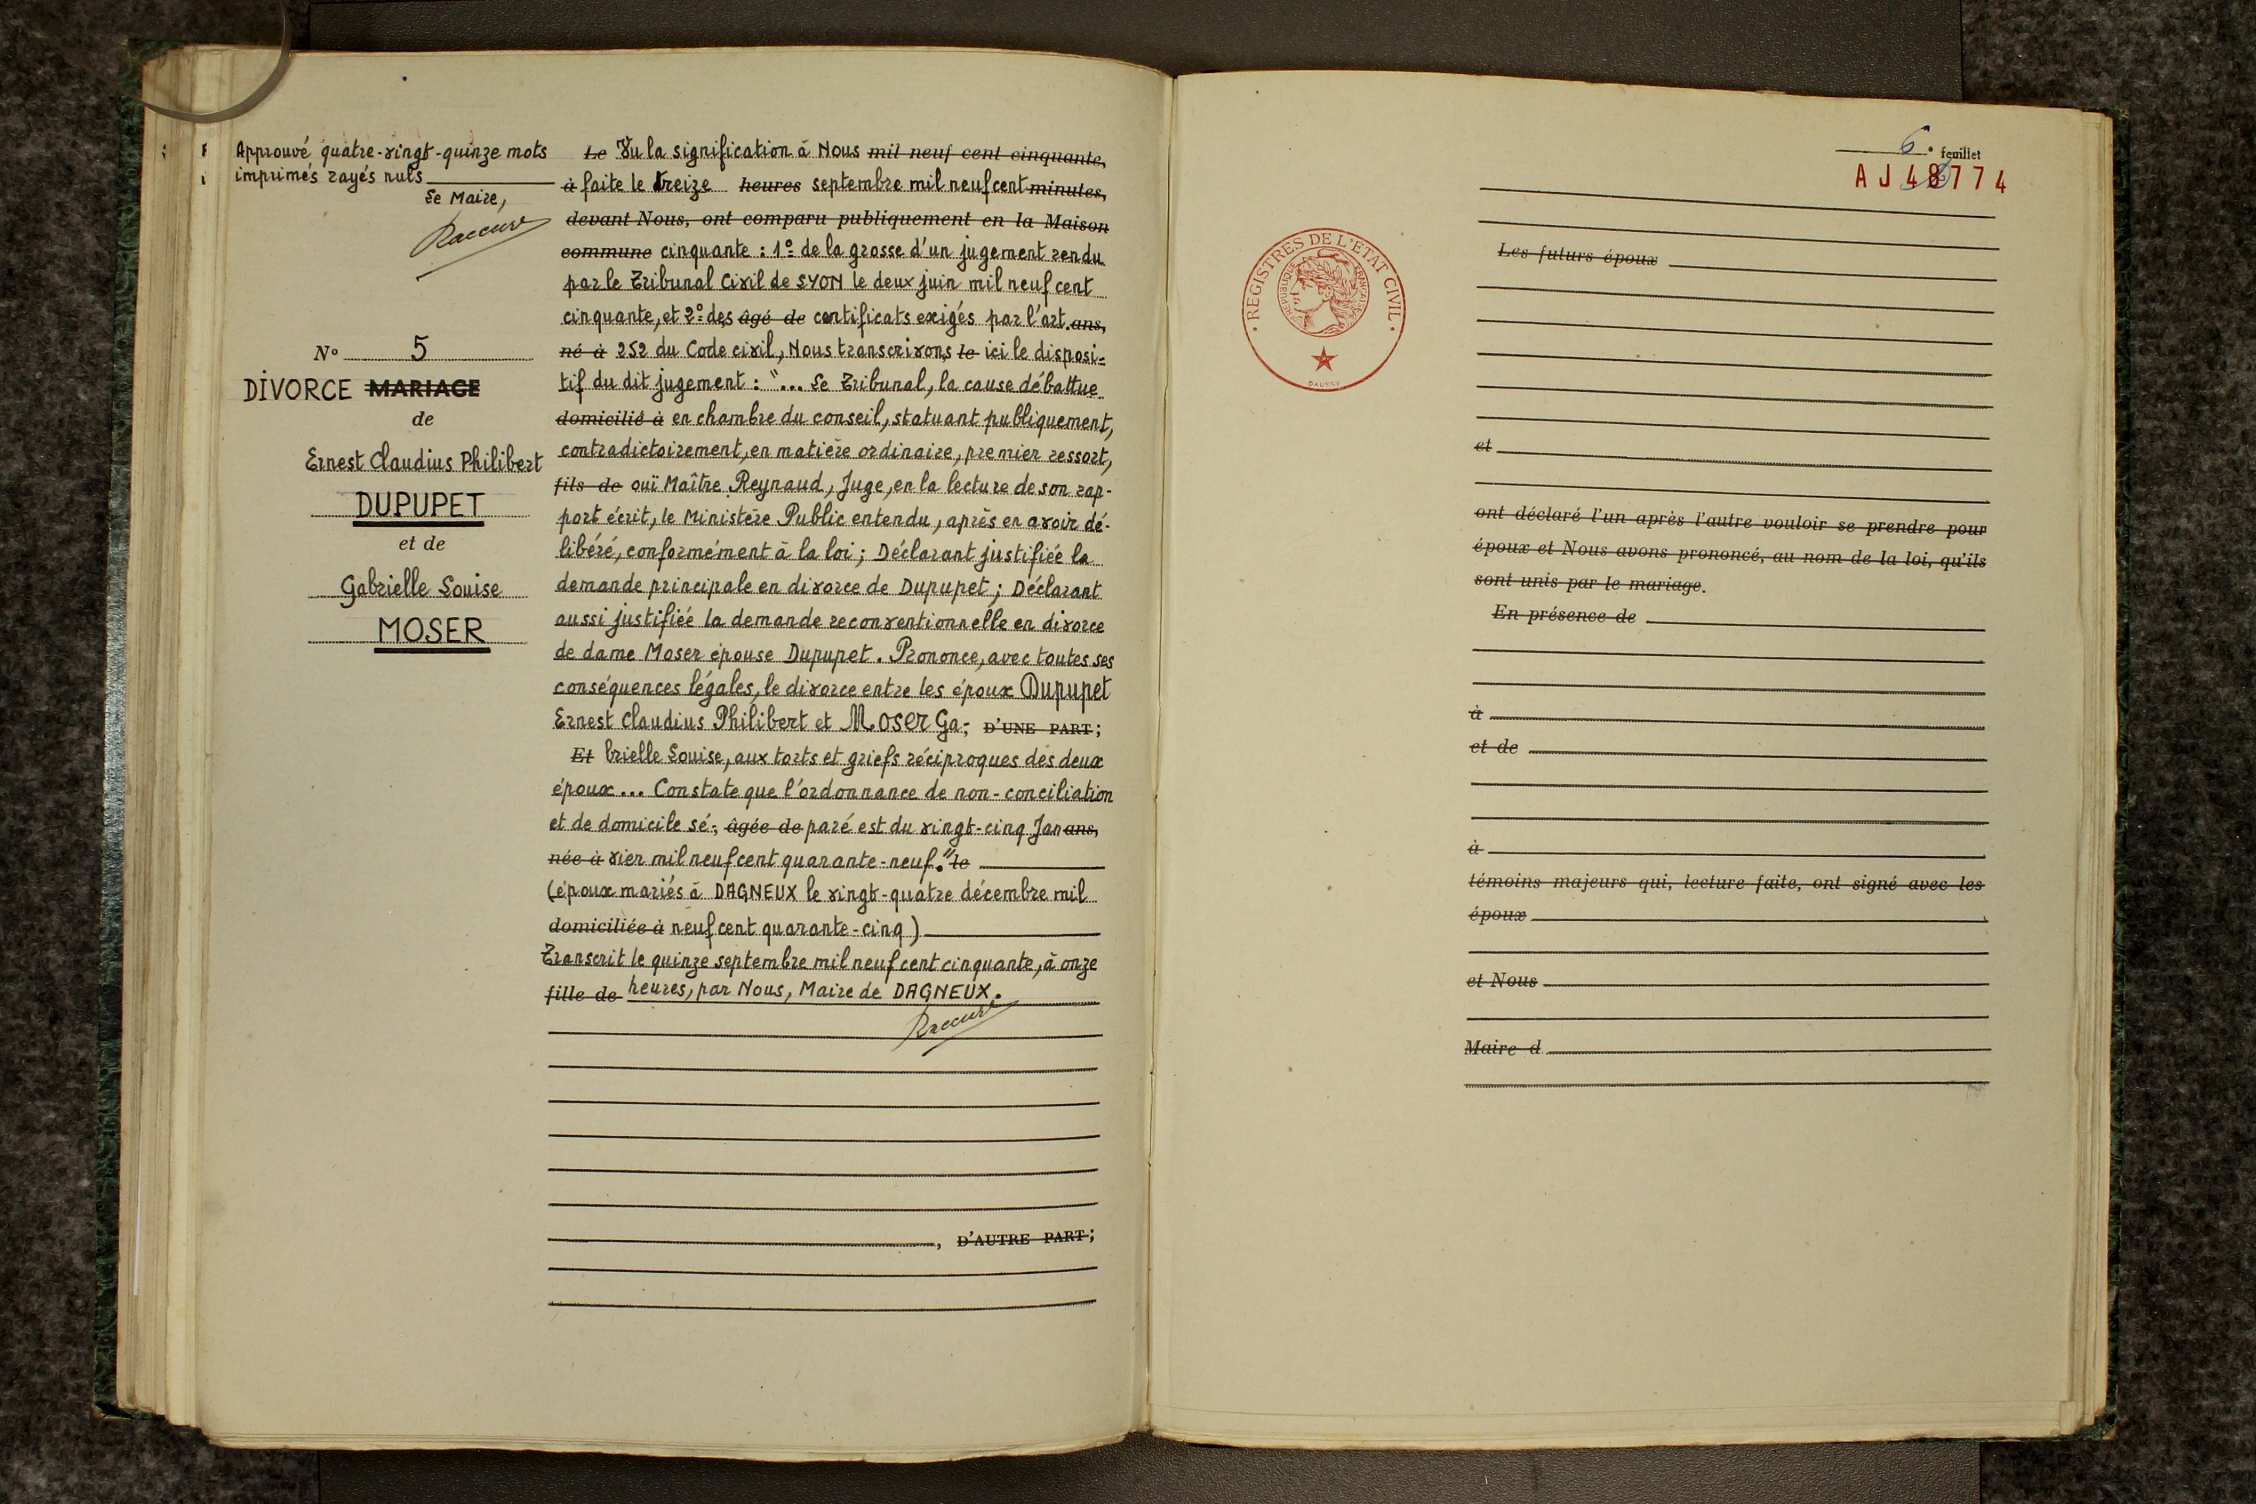 Approuvé quatre-vingt-quinze mots
imprimés rayés nuls
Le Maire,
N° 5
DIVORCE MARIAGE
de
Ernest Claudius Philibert
DUPUPET
et de
Gabrielle Louise
MOSER
Le Vu la signification à Nous mil neuf cent cinquante,
à faite le treize heures septembre mil neuf cent minutes,
devant Nous, ont comparu publiquement en la Maison
commune cinquante : 1° de la grosse d'un jugement rendu
par le Tribunal Civil de LYON le deux juin mil neuf cent
cinquante, et 2° des âgé de certificats exigés par l'art. ans,
né à 252 du Code civil, Nous transcrivons le ici le disposi-
tif du dit jugement : "... Le Tribunal, la cause débattue
domicilié à en chambre du conseil, statuant publiquement,
contradictoirement, en matière ordinaire, premier ressort,
fils de ouï Maître Reynaud, Juge, en la lecture de son rap-
port écrit, le Ministère Public entendu, après en avoir dé-
libéré, conformément à la loi ; Déclarant justifiée la
demande principale en divorce de Dupupet ; Déclarant
aussi justifiée la demande reconventionnelle en divorce
de dame Moser épouse Dupupet. Prononce, avec toutes ses
conséquences légales, le divorce entre les époux Dupupet
Ernest Claudius Philibert et Moser Ga-, D'UNE PART ;
Et brielle Louise, aux torts et griefs réciproques des deux
époux... Constate que l'ordonnance de non-conciliation
et de domicile sé-, âgée de paré est du vingt-cinq Jan ans,
née à vier mil neuf cent quarante-neuf." le
(époux mariés à DAGNEUX le vingt-quatre décembre mil
domiciliée à neuf cent quarante-cinq)
Transcrit le quinze septembre mil neuf cent cinquante, à onze
fille de heures, par Nous, Maire de DAGNEUX.
, D'AUTRE PART ;
6 e feuillet
AJ 48774
REGISTRES DE L'ETAT CIVIL
REPUBLIQUE FRANÇAISE
Les futurs époux
et
ont déclaré l'un après l'autre vouloir se prendre pour
époux et Nous avons prononcé, au nom de la loi, qu'ils
sont unis par le mariage.
En présence de
à
et de
à
témoins majeurs qui, lecture faite, ont signé avec les
époux
et Nous
Maire d